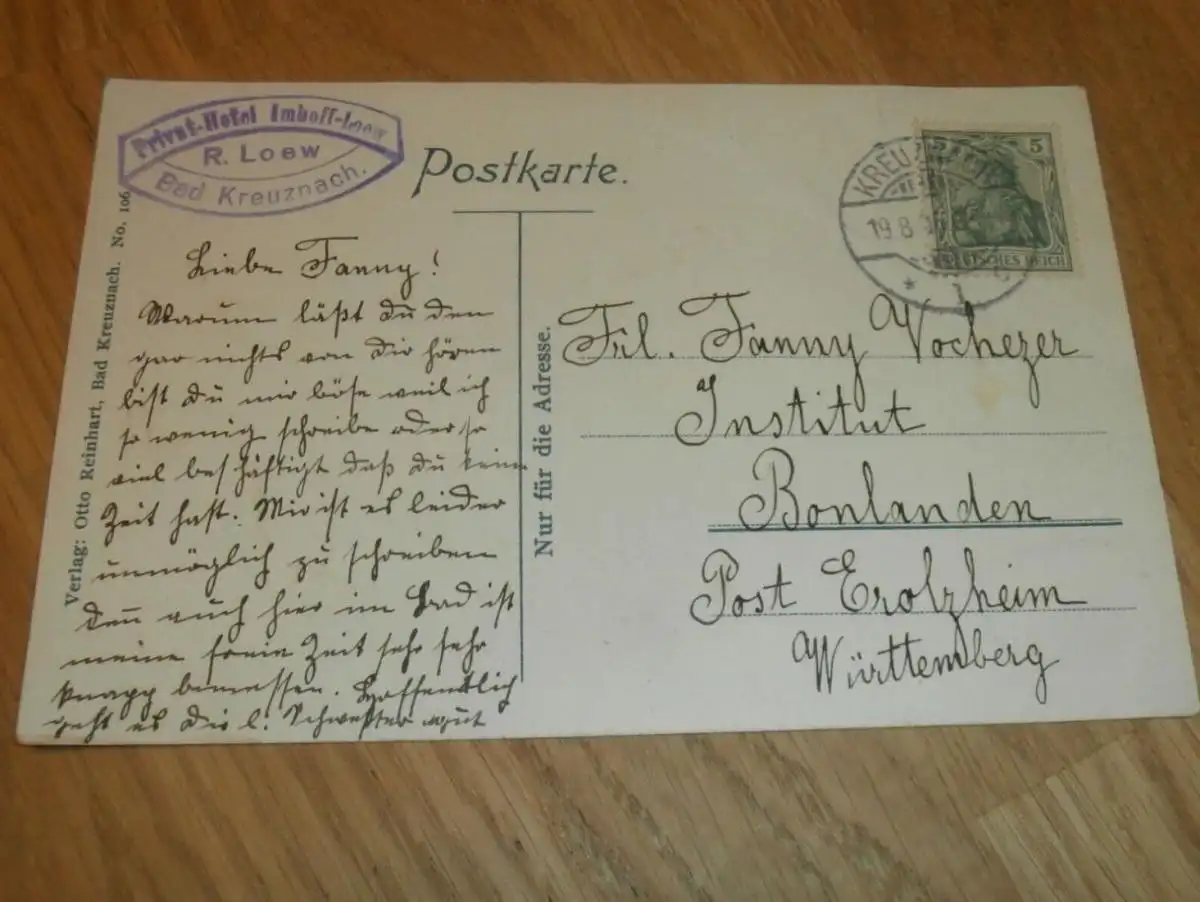 Privat-Hotel Imhoff-Loew
R. Loew
Bad Kreuznach.
Postkarte.
KREUZNACH
19.8
5
DEUTSCHES REICH
Verlag: Otto Reinhart, Bad Kreuznach. No. 106
Liebe Fanny!
Warum läßt du den
gar nichts von dir hören
bist du mir böse weil ich
so wenig schreibe oder so
viel beschäftigt daß du keine
Zeit hast. Mir ist es leider
unmöglich zu schreiben
den̅ auch hier im Bad ist
meine freie Zeit sehr sehr
knapp bemessen. Hoffentlich
geht es dir l. Schwester gut
Nur für die Adresse.
Frl. Fanny Vochezer
Institut
Bonlanden
Post Erolzheim
Württemberg